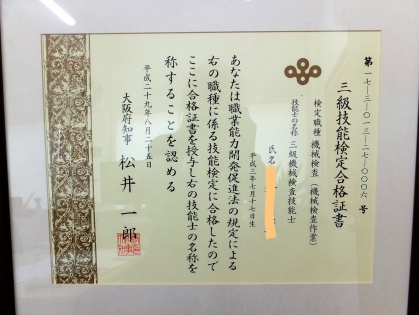 第一七―三―〇一三―二七―〇〇〇六号
三級技能検定合格証書
検定職種 機械検査（機械検査作業）
技能士の名称 三級機械検査技能士
氏名
平成三年七月十七日生
あなたは職業能力開発促進法の規定による
右の職種に係る技能検定に合格したので
ここに合格証書を授与し右の技能士の名称を
称することを認める
平成二十九年八月二十五日
大阪府知事 松井一郎